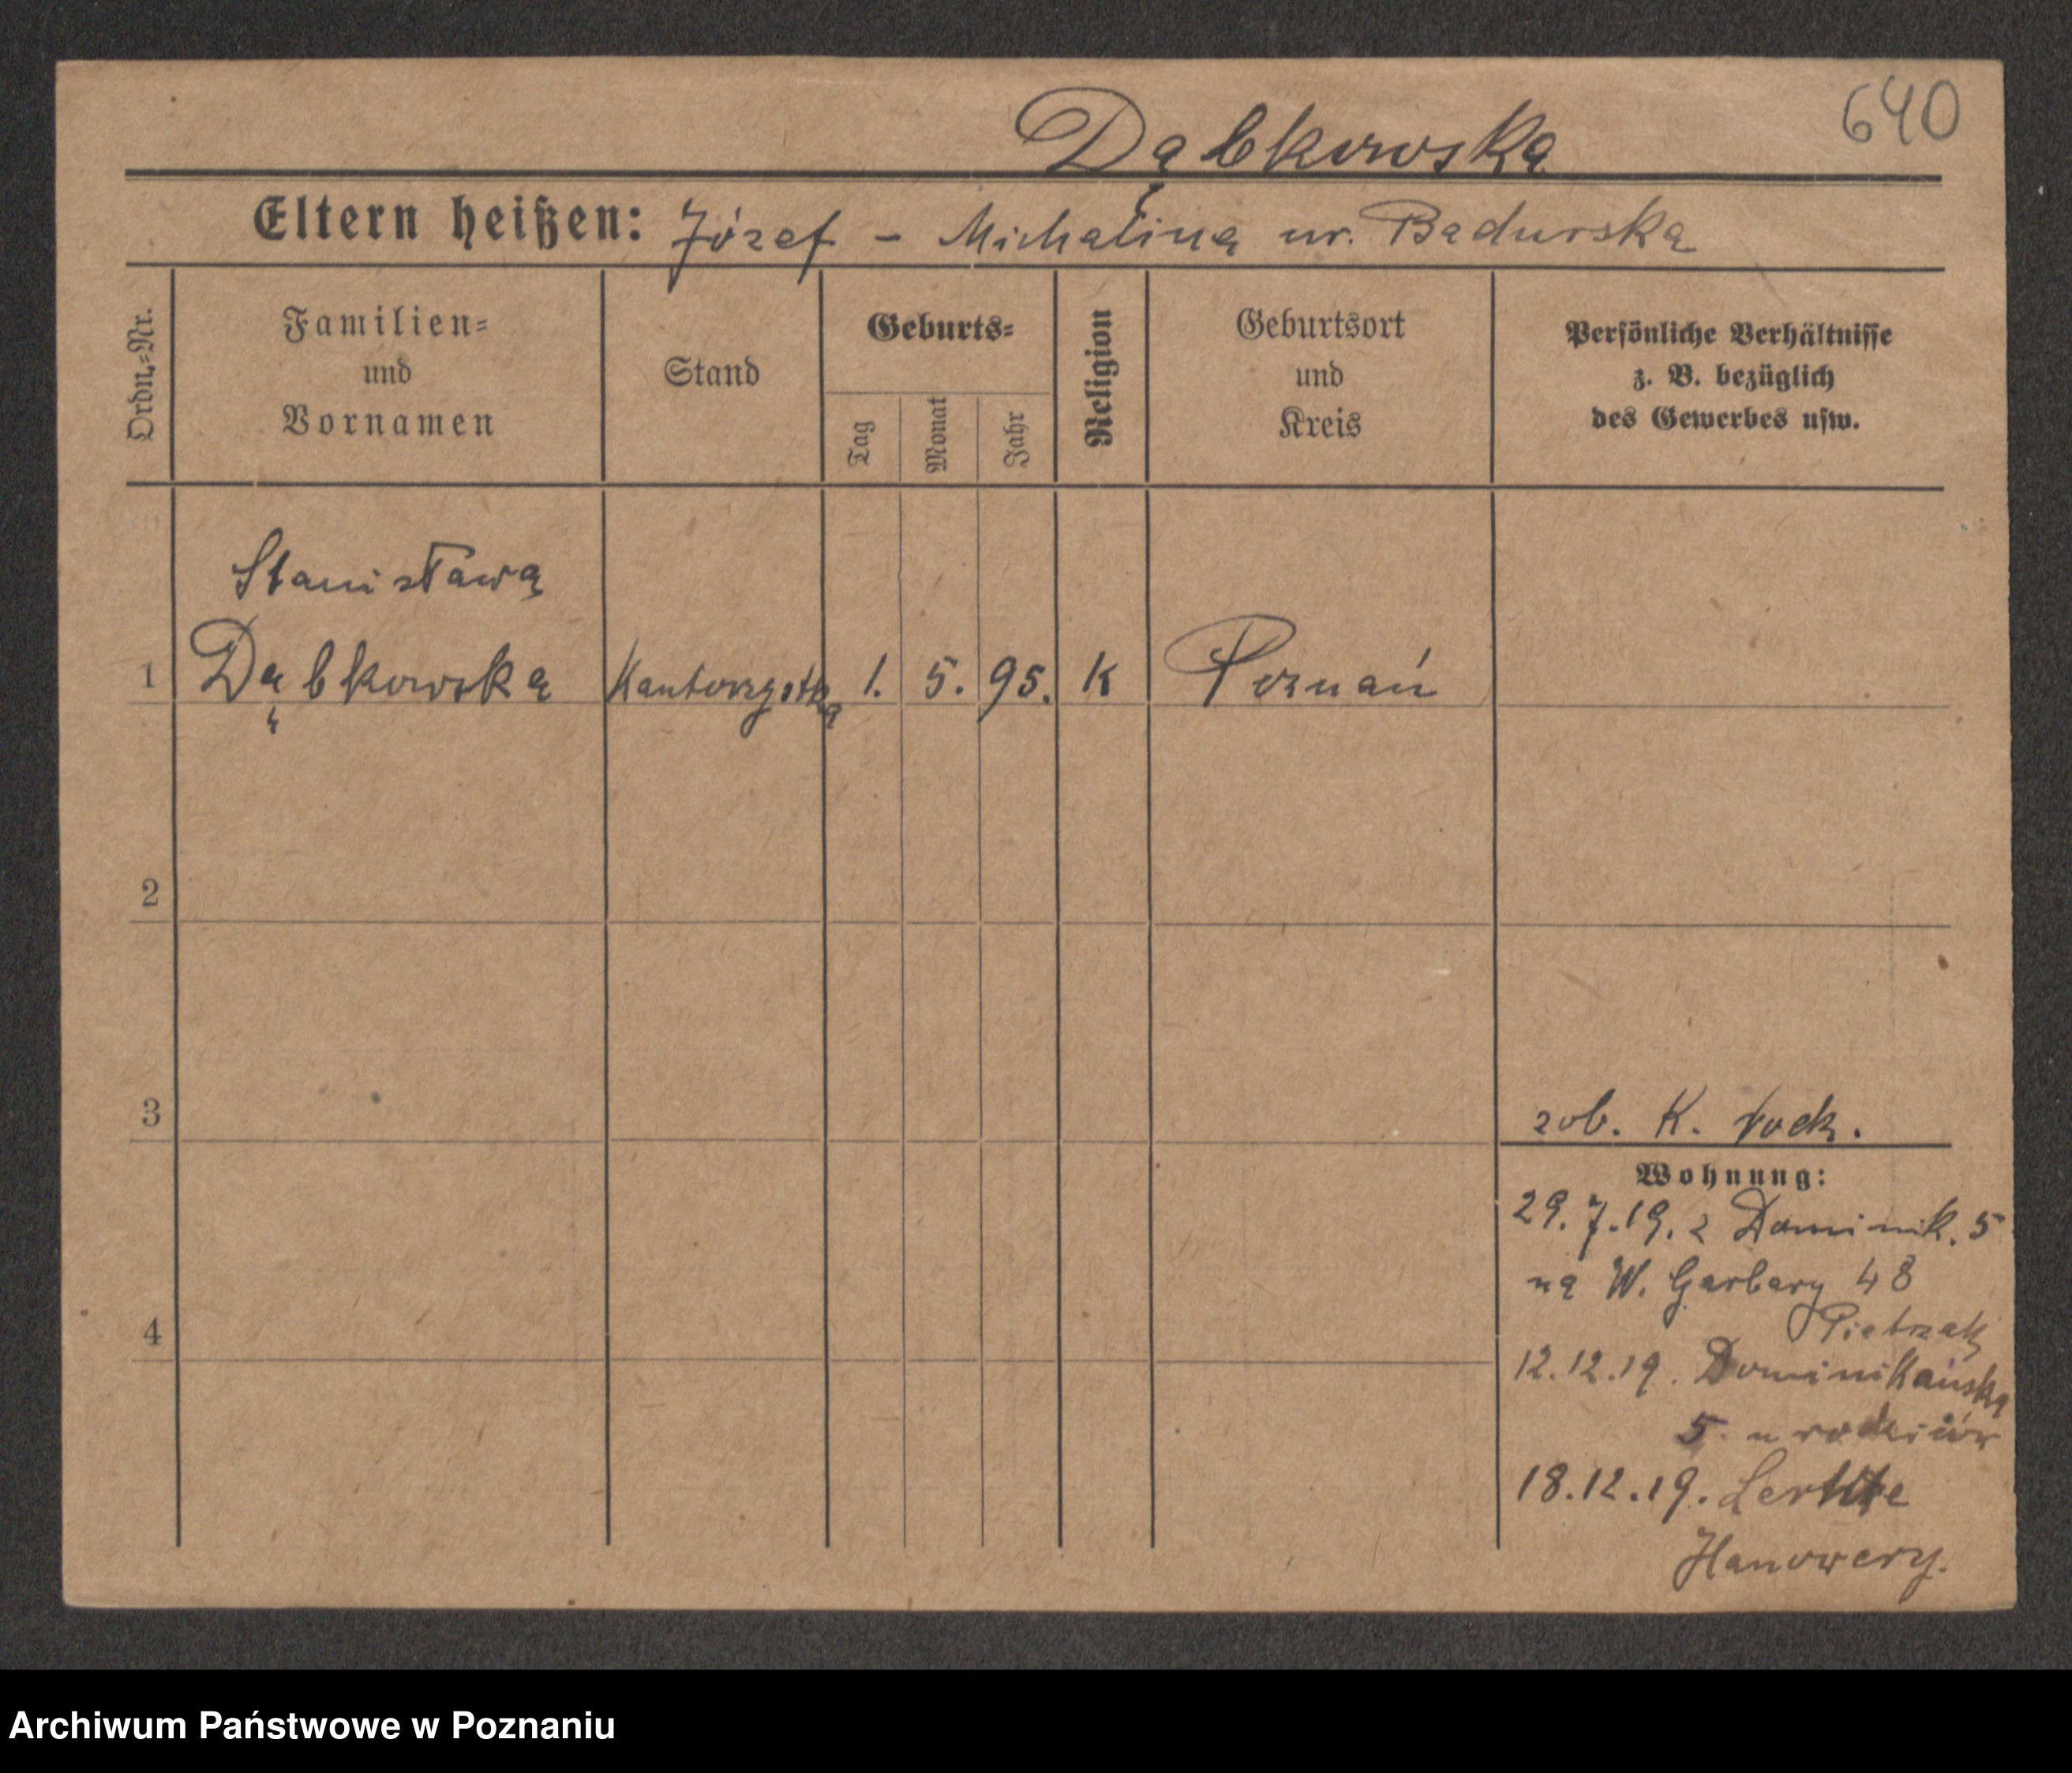 640
Dąbkowska
Eltern heißen: Józef - Michalina ur. Badurska
Ordn.-Nr.
Familien-
und
Vornamen
Stand
Geburts-
Tag
Monat
Jahr
Religion
Geburtsort
und
Kreis
Persönliche Verhältnisse
z. B. bezüglich
des Gewerbes usw.
Stanisława
1 Dąbkowska Kantorzystka 1. 5. 95. K Poznań
2
3
zob. K. rodz.
Wohnung:
29.7.19. z Dominik. 5
na W. Garbary 48
Pietrzak
4
12.12.19. Dominikańska
5. u rodziców
18.12.19.
Hanowery.
Archiwum Państwowe w Poznaniu